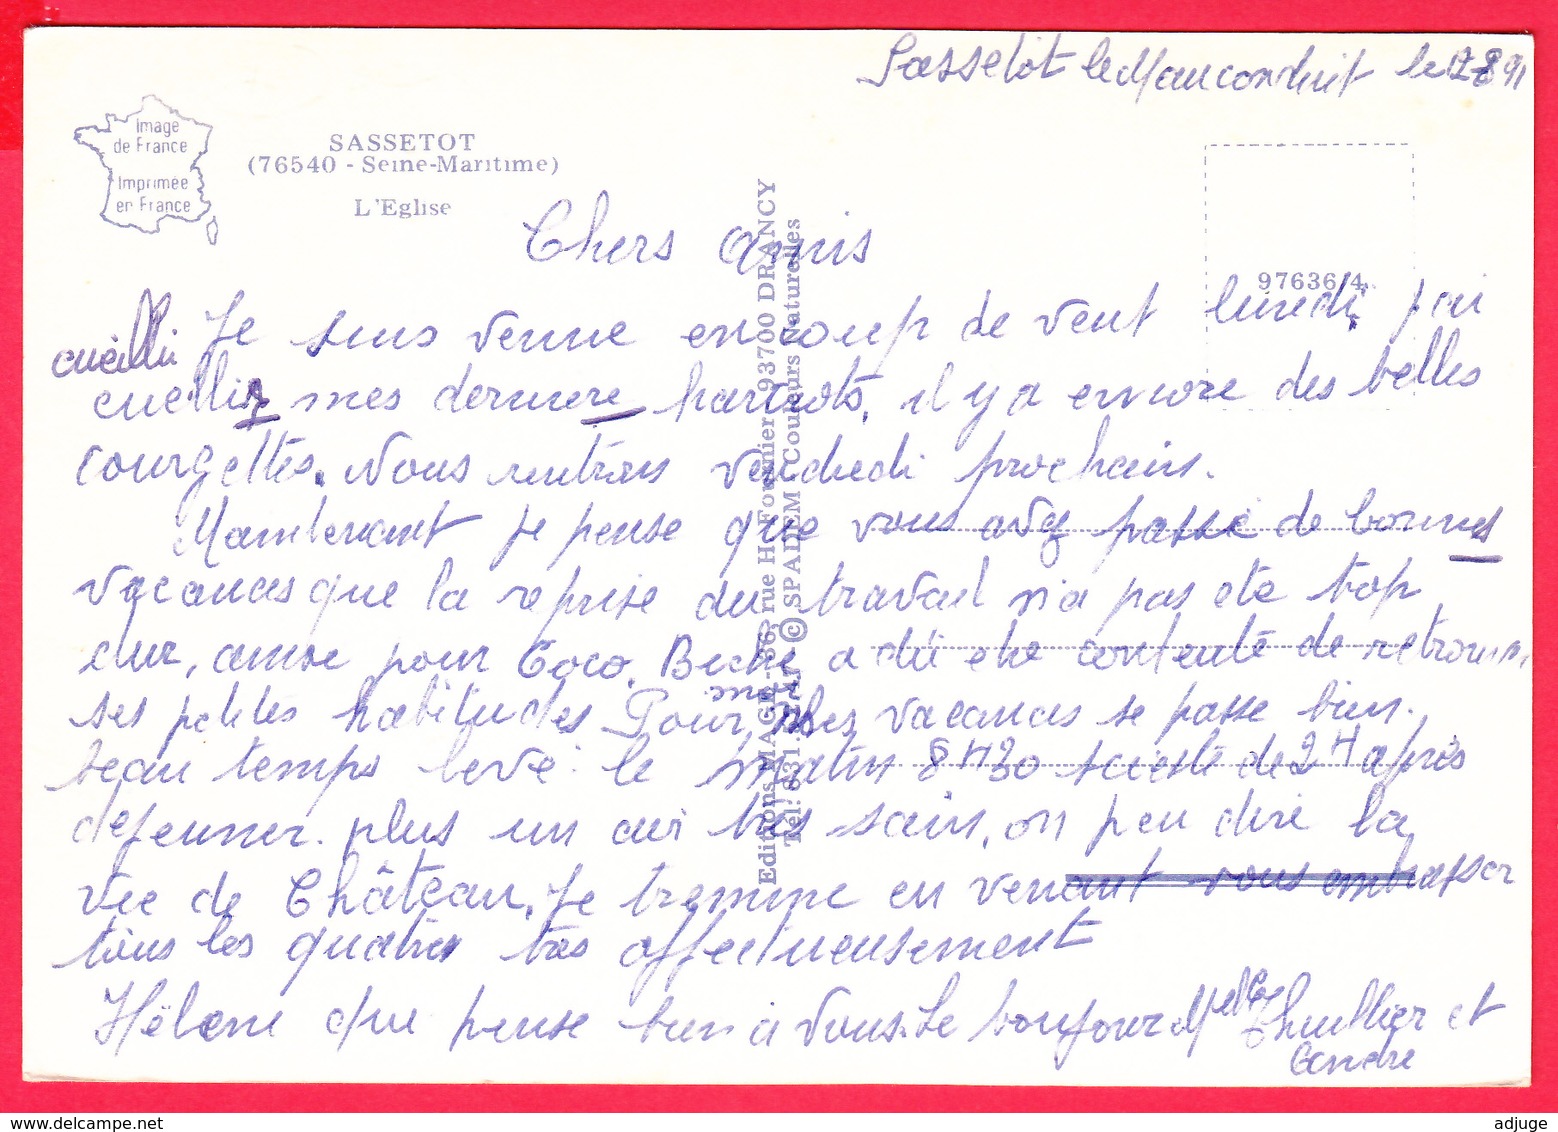 Sassetot le Mauconduit le 12 8 91
Image
de France
Imprimée
en France
SASSETOT
(76540 - Seine-Maritime)
L'Eglise
97636/4
Editions MAGE - 56, rue H. Fournier 93700 DRANCY
Tél. 831 © SPADEM Couleurs Naturelles
Chers amis
cueilli
Je suis venue en coup de vent lundi, j'ai
mes dernière haricots, il y a encore des belles
courgettes. Nous rentrons vendredi prochains.
Maintenant je pense que vous avez passé de bonnes
vacances que la reprise du travail n'a pas été trop
dur, aussi pour Coco. Biche a dû etre contente de retrouver
ses petites habitudes Pour mes vacances se passe bien.
beau temps levé le matin 8H30 scieste de 2H après
dejeuner. plus un air très sain, on peu dire la
vie de Château. Je termine en venant vous embrasser
tous les quatre très affectueusement
Hélène que pense bien à vous. Le bonjour Mme Thuillier et